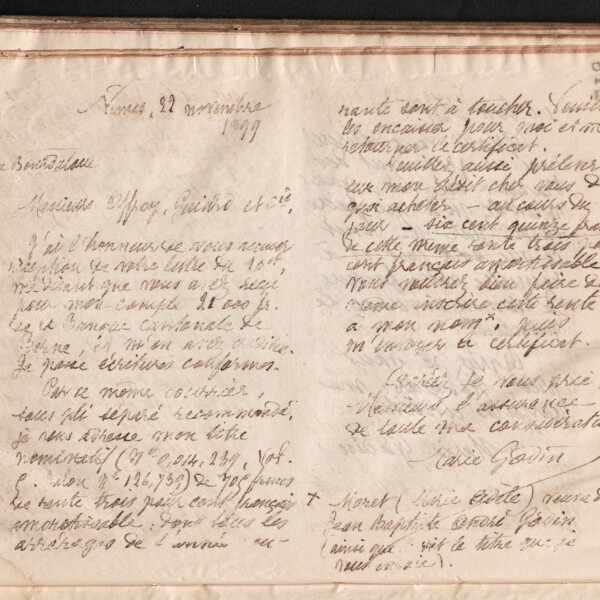 Nîmes, 22 novembre
1899
Bourdaloue
Messieurs Offroy, Guiard et Cie,
J'ai l'honneur de vous accuser
réception de votre lettre du 20 ct,
me disant que vous avez reçu
pour mon compte 21 000 fr.
de la Banque cantonale de
Berne, et m'en avez crédité.
Je passe écritures conformes.
Par ce même courrier,
sous pli séparé recommandé,
je vous adresse mon titre
nominatif (N° 0,014,239, Vol.
Talon N° 126,739) de 700 francs
de rente trois pour cent français
amortissable, dont tous les
arrérages de l'année cou-
rante sont à toucher. Veuillez
les encaisser pour moi et me
retourner le certificat.
Veuillez aussi prélever
sur mon crédit chez vous de
quoi acheter – au cours du
jour – six cent quinze francs
de cette même rente trois pour
cent français amortissable.
Vous voudrez bien faire de
même inscrire cette rente
à mon nom x, puis
m'envoyer le certificat.
Agréez, je vous prie,
Messieurs, l'assurance
de toute ma considération
Marie Godin
x Moret (Marie Adèle) veuve de
Jean Baptiste André Godin
(ainsi que dit le titre que je
vous envoie).